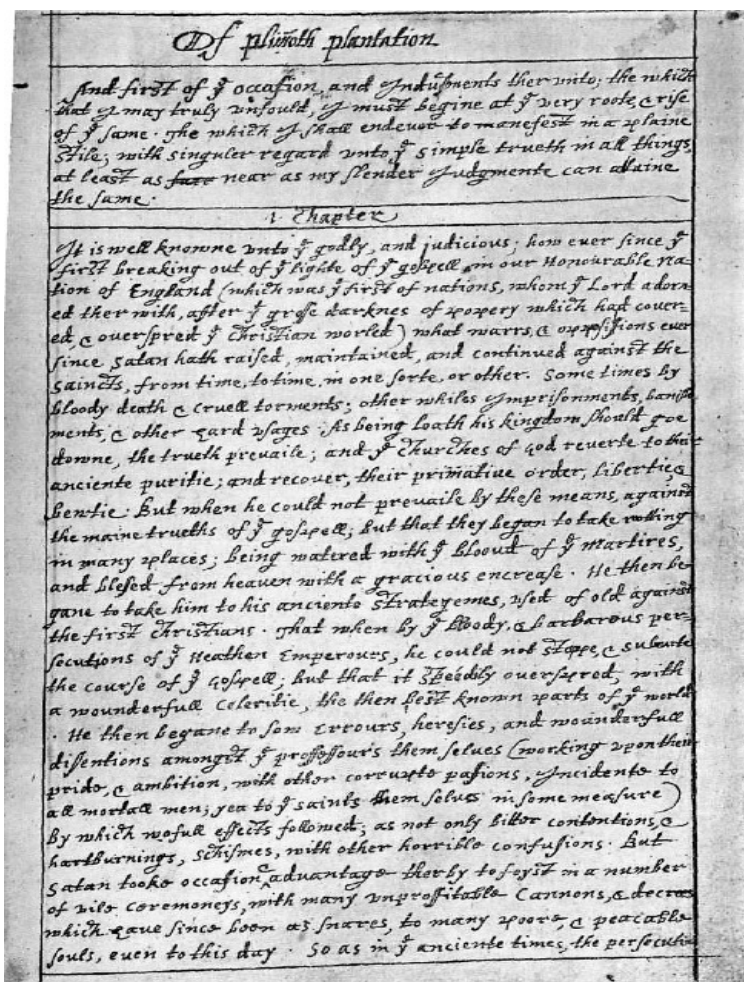 Of plim̃oth plantation
And first of yͤ occasion, and Indusments ther unto; the which
that I may truly unfould, I must begine at yͤ very roote, & rise
of yͤ same. The which I shall endevor to manefest in a plaine
stile; with singuler regard unto yͤ simple trueth in all things,
at least as near as my slender Judgmente can attaine
the same.
1. Chapter
It is well knowne unto yͤ godly, and judicious; how ever since yͤ
first breaking out of yͤ lighte of yͤ gospell, in our Honourable Na-
tion of England (which was yͤ first of nations, whom yͤ Lord adorn-
ed ther with, after yͤ grosse darknes of popery which had cover-
ed, & overspred yͤ Christian worled) what warrs, & oppossisions ever
since Satan hath raised, maintained, and continued against the
Saincts, from time, to time, in one sorte, or other. Some times by
bloody death & cruell torments; other whiles Imprisonments, banish-
ments, & other hard usages. As being loath his kingdom should goe
downe, the trueth prevaile; and yͤ Churches of God reverte to their
anciente puritie; and recover, their primative order, libertie, &
bewtie. But when he could not prevaile by these means, against
the maine trueths of yͤ gospell; but that they began to take rotting
in many places; being watered with yͤ bloud of yͤ Martires,
and blesed from heaven with a gracious encrease. He then be-
gane to take him to his anciente strategemes, used of old against
the first Christians. That when by yͤ bloody, & barbarous per-
secutions of yͤ Heathen Emperours, he could not stoppe, & subverte
the course of yͤ Gospell; but that it speedily overspred, with
a wounderfull celeritie, the then best known parts of yͤ world
. He then begane to sow errours, heresies, and wounderfull
disentions amongst yͤ professours them selves (working upon their
pride, & ambition, with other corrupte pasions, Incidente to
all mortall men; yea to yͤ saints them selves in some measure)
By which wofull effects followed; as not only bitter contentions, &
hartburnings, schismes, with other horrible confusions. But
Satan tooke occasion & advantage therby to foyst in a number
of vile ceremoneys, with many unproffitable Cannons, & decrees
which have since been as snares, to many poore, & peacable
souls, even to this day. So as in yͤ anciente times, the persecutio